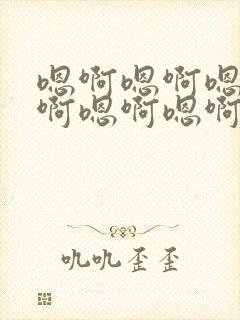 嗯啊嗯啊嗯
啊嗯啊嗯啊
吼吼歪歪